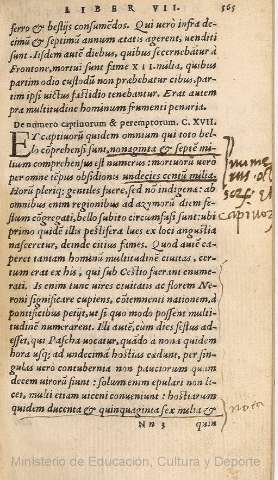 LIBER VII. 565
ferro & bestijs consumẽdos. Qui verò infra de-
cimũ & septimum annum ætatis agerent, venditi
sunt. Iisdem autẽ diebus, quibus secernebãtur à
Frontone, mortui sunt fame XII. milia, quibus
partim odio custodũ non præbebatur cibus, par-
tim ipsi victus fastidio tenebantur. Erat autem
pra multitudine hominum frumenti penuria.
De numero captiuorum & peremptorum. C. XVII.
ET captiuorũ quidem omnium qui toto bel-
lo cõprehensi sunt, nonaginta & septẽ mi-
lium comprehensus est numerus: mortuorũ verò
per omne tẽpus obsidionis vndecies centũ milia.
Horũ pleriq; gentiles fuere, sed nõ indigenæ: ab
omnibus enim regionibus ad azymorũ diem fe-
stum cõgregati, bello subito circumfusi sunt: vbi
primo quidẽ illis pestifera lues ex loci angustia
nasceretur, deinde citius fames. Quod autẽ ca-
peret tantam hominũ multitudinẽ ciuitas, cer-
tum erat ex his, qui sub Cestio fuerant enume-
rati. Is enim tunc vires ciuitatis ac florem Ne-
roni significare cupiens, cõtemnenti nationem, à
pontificibus petijt, vt si quo modo possent multi-
tudinẽ numerarent. Illi autẽ, cum dies festus ad-
esset, qui Pascha vocatur, quãdo à nona quidem
hora vsq; ad vndecimã hostias cædunt, per sin-
gulas verò contubernia non pauciorum quàm
decem virorũ sunt: solum enim epulari non li-
cet, multi etiam viceni conueniunt: hostiarum
quidem ducenta & quinquaginta sex milia &
Nn 3 quin
captiuor
Ministerio de Educación, Cultura y Deporte